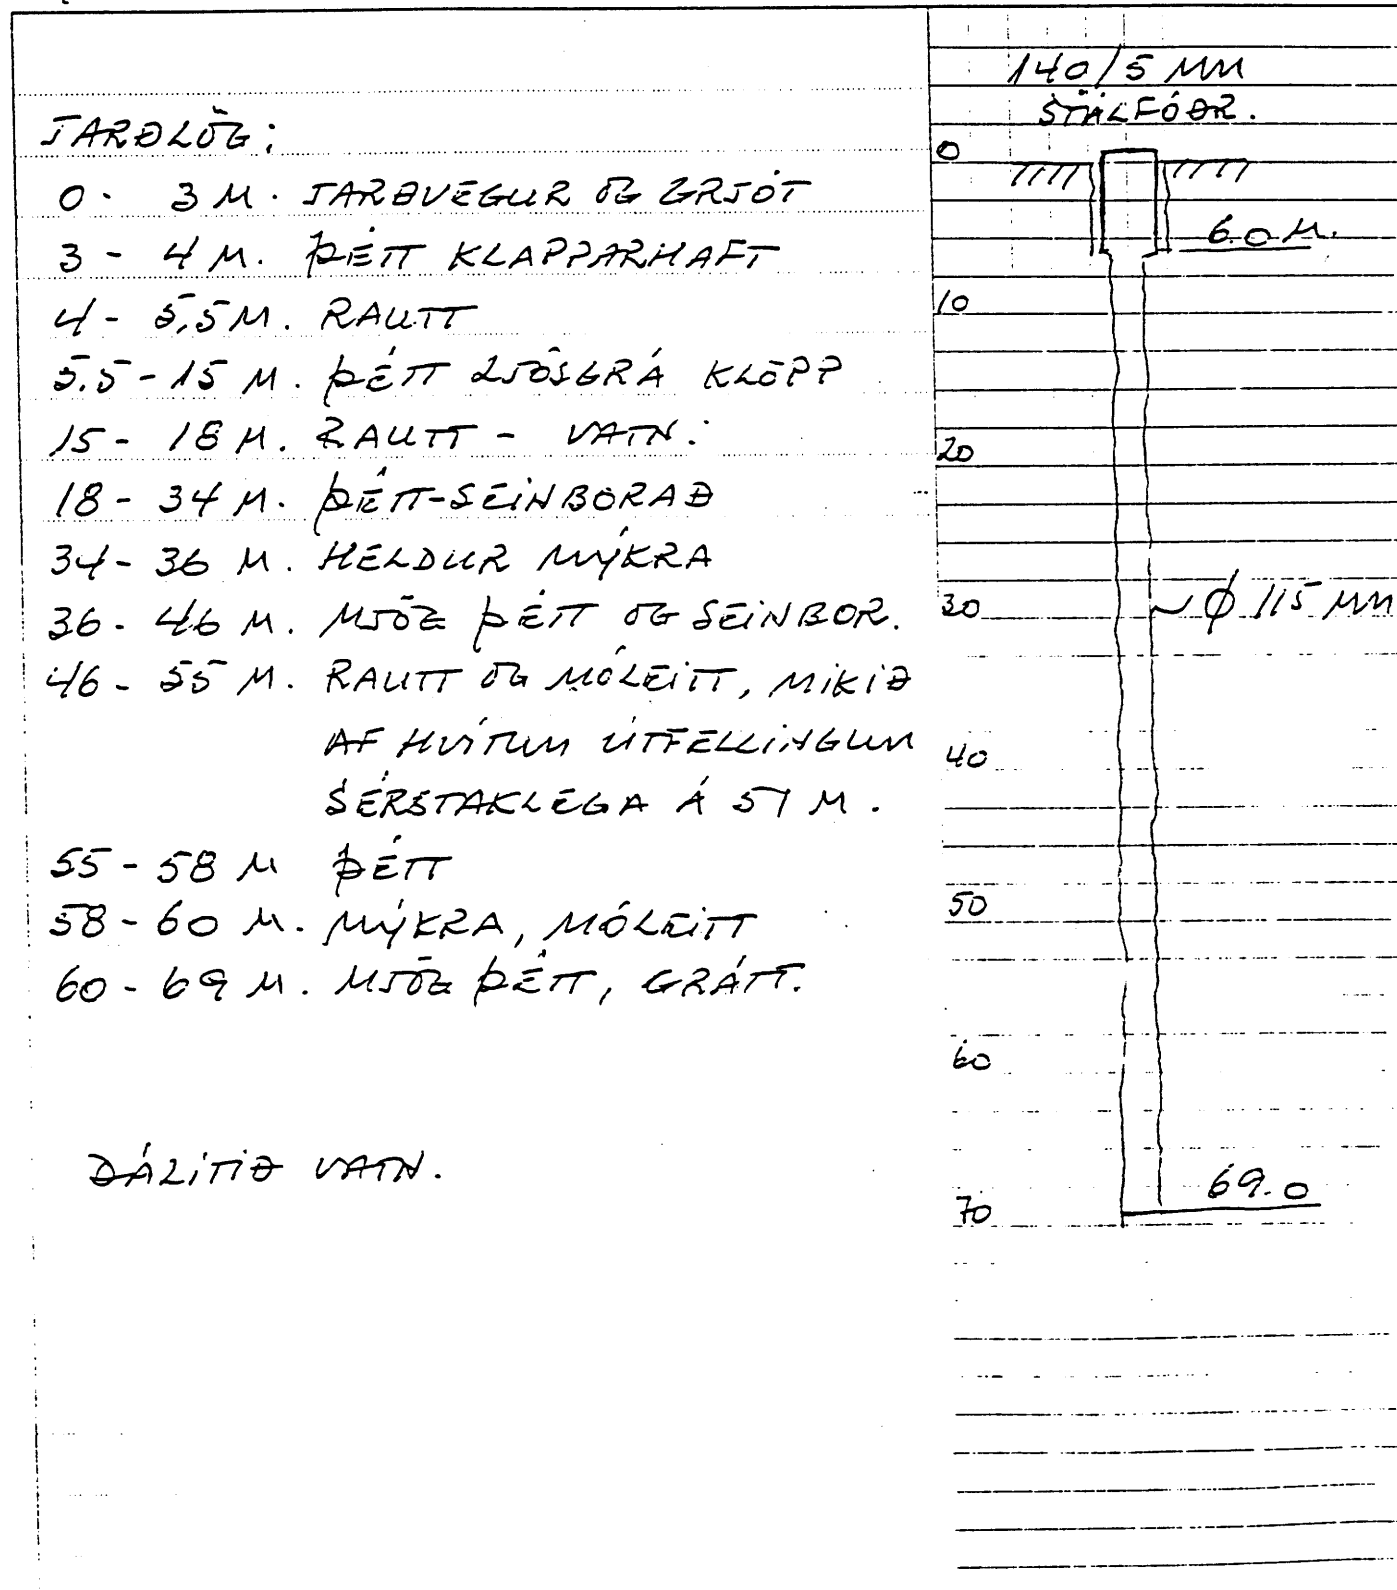 JARÐLÖG:
0 - 3 M. JARÐVEGUR OG GRJÓT
3 - 4 M. ÞÉTT KLAPPARHAFT
4 - 5,5 M. RAUTT
5.5 - 15 M. ÞÉTT LJÓSGRÁ KLÖPP
15 - 18 M. RAUTT - VATN.
18 - 34 M. ÞÉTT-SEINBORAÐ
34 - 36 M. HELDUR MÝKRA
36 - 46 M. MJÖG ÞÉTT OG SEINBOR.
46 - 55 M. RAUTT OG MÓLEITT, MIKIÐ
AF HVÍTUM ÚTFELLINGUM
SÉRSTAKLEGA Á 51 M.
55 - 58 M ÞÉTT
58 - 60 M. MÝKRA, MÓLEITT
60 - 69 M. MJÖG ÞÉTT, GRÁTT.
DÁLÍTIÐ VATN.
140/5 MM
STÁLFÓÐR.
0
6.0 M.
10
20
30
~ Ø 115 MM
40
50
60
69.0
70